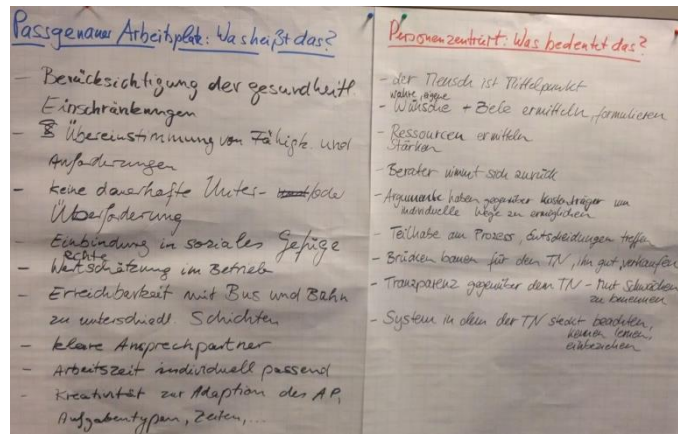 Passgenauer Arbeitsplatz: Was heißt das?
- Berücksichtigung der gesundheitl.
Einschränkungen
- Übereinstimmung von Fähigk. und
Anforderungen
- keine dauerhafte Unter- /oder
Überforderung
- Einbindung in soziales Gefüge
echte
- Wertschätzung im Betrieb
- Erreichbarkeit mit Bus und Bahn
zu unterschiedl Schichten
- klare Ansprechpartner
- Arbeitszeit individuell passend
- Kreativität zur Adaption des AP,
Aufgabentypen, Zeiten,...
Personenzentriert: Was bedeutet das?
- der Mensch ist Mittelpunkt
wahre, eigene
- Wünsche + Ziele ermitteln, formulieren
- Ressourcen ermitteln
Stärken
- Berater nimmt sich zurück
- Argumente haben gegenüber Kostenträger um
individuelle Wege zu ermöglichen
- Teilhabe am Prozess, Entscheidungen treffen
- Brücken bauen für den TN, ihn gut "verkaufen"
- Transparenz gegenüber dem TN - Mut Schwächen
zu benennen
- System in dem der TN steckt beachten,
kennen lernen,
einbeziehen